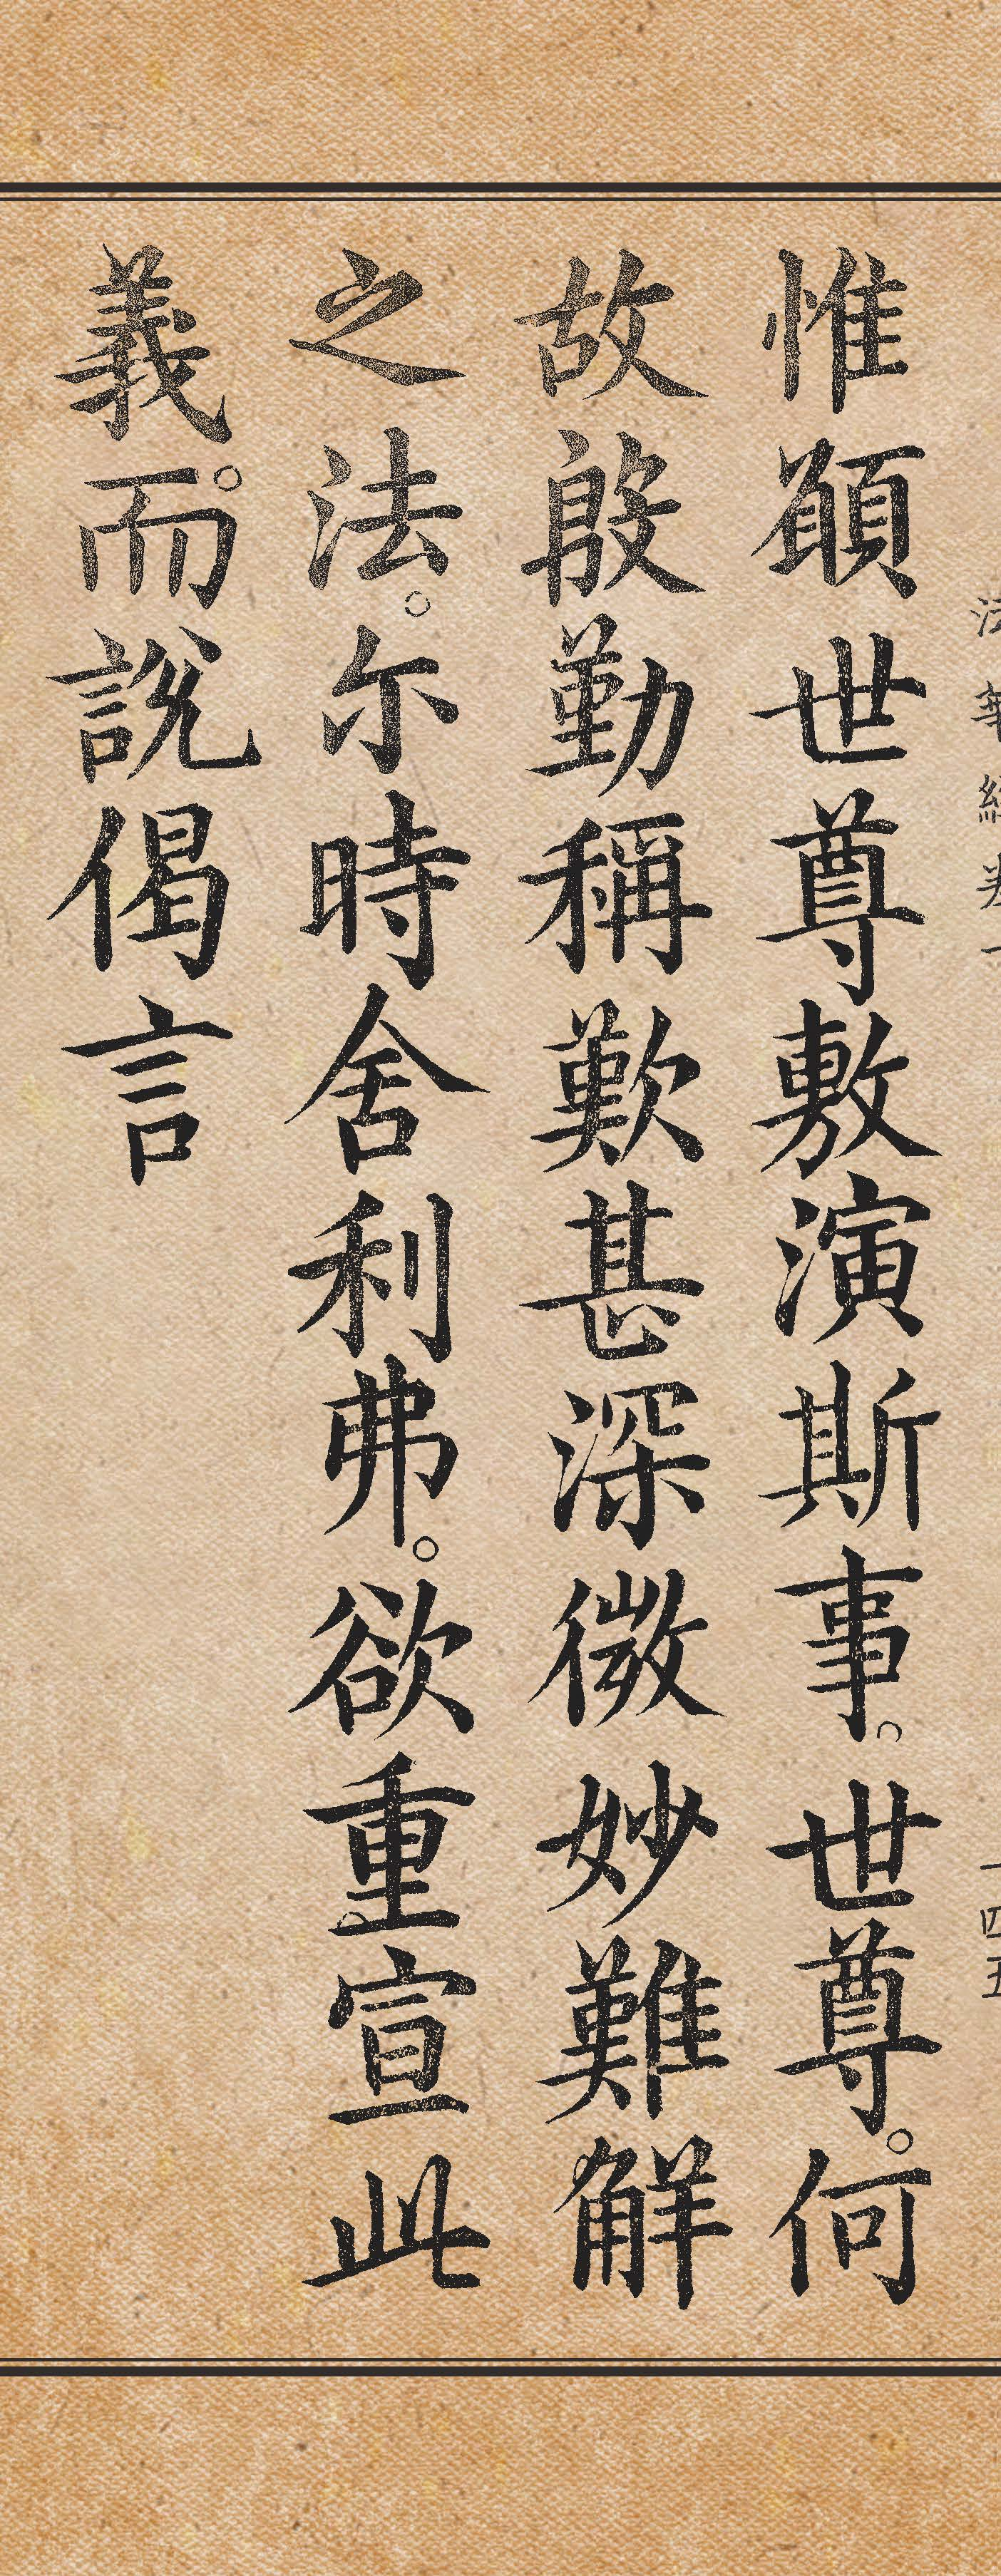 法華經卷一 一四五
惟願世尊敷演斯事。世尊。何
故殷勤稱歎甚深微妙難解
之法。尒時舍利弗。欲重宣此
義。而說偈言